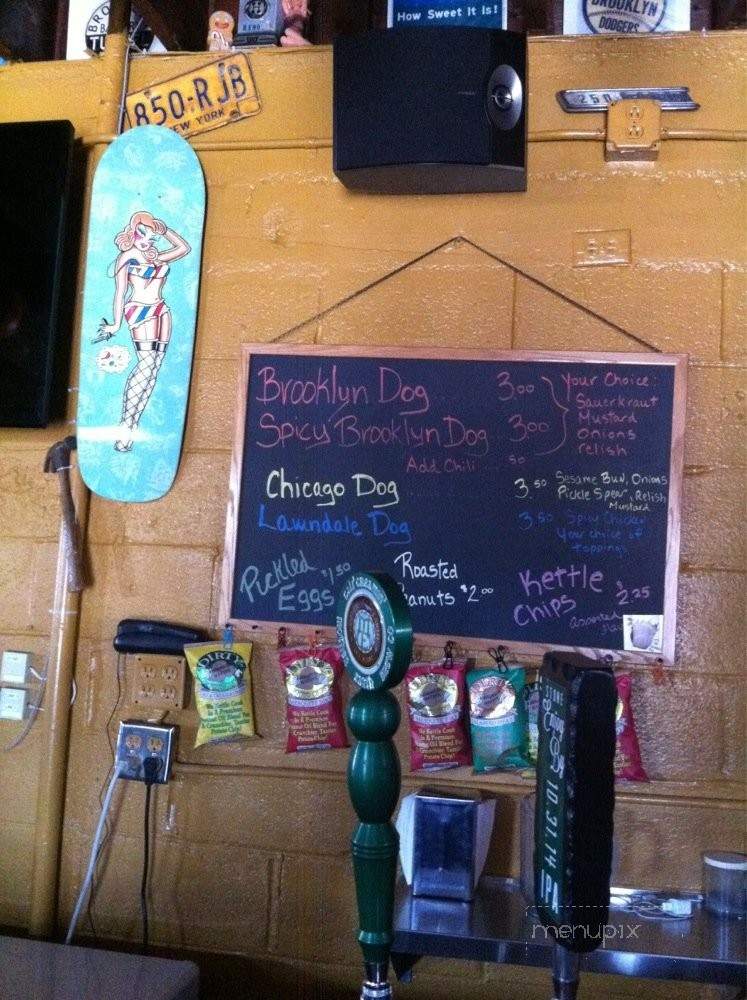 How Sweet It Is!
BROOKLYN
DODGERS
850-RJB
NEW YORK
250
Brooklyn Dog 3.00
Spicy Brooklyn Dog 3.00
Your Choice:
Sauerkraut
Mustard
Onions
relish
Add Chili .50
Chicago Dog 3.50
Sesame Bun, Onions
Pickle Spear, Relish
Mustard
Lawndale Dog 3.50
Spicy Chicken
Your choice of
toppings
Pickled
Eggs $1.50
Roasted
Peanuts $2.00
Kettle
Chips $2.25
assorted
DIRTY
STONE
Enjoy By
10.31.14
IPA
menupix